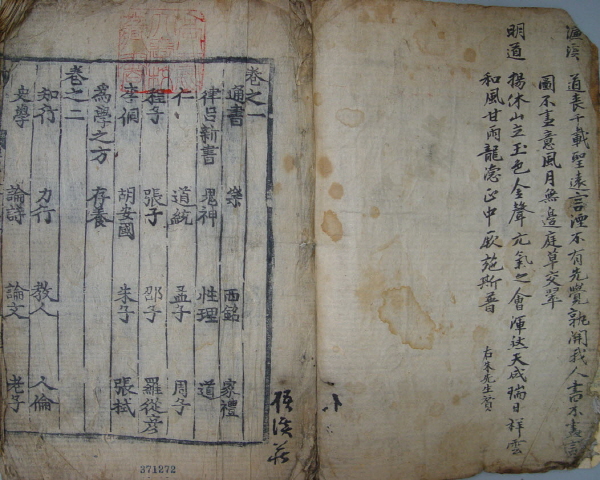 濂溪 道喪千載聖遠言湮不有先覺孰開我人書不盡言
圖不盡意風月無邊庭草交翠
明道 揚休山立玉色金聲元氣之會渾然天成瑞日祥雲
和風甘雨龍德正中厥施斯普
右朱先生贊
卷之一
通書 樂 西銘 家禮
律呂新書 鬼神 性理 道
仁 道統 孟子 周子
程子 張子 邵子 羅從彦
李侗 胡安國 朱子 張栻
爲學之方 存養
卷之二
知行 力行 教人 人倫
史學 論詩 論文 老子
371272